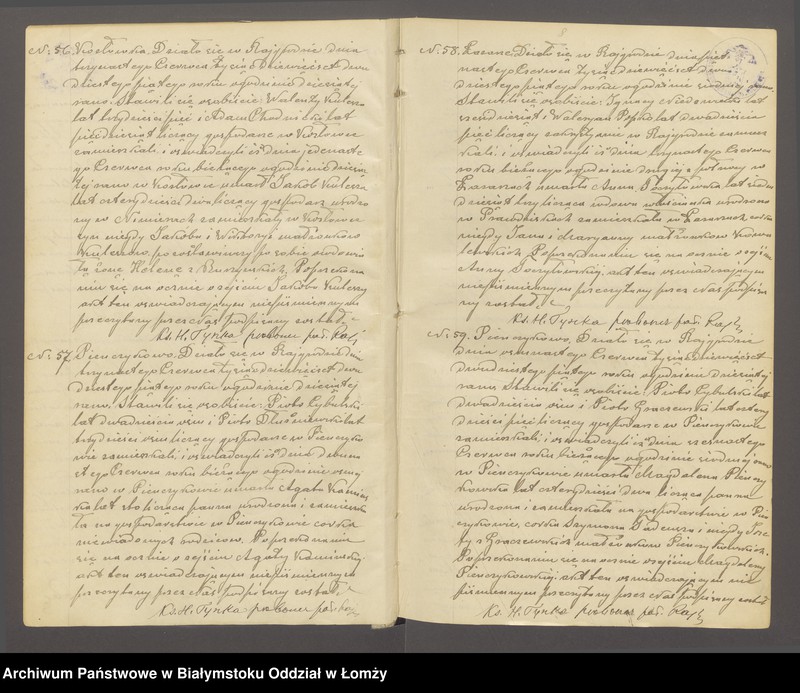 No 56. Kosłówka. Działo się w Rajgrodzie dnia
trzynastego Czerwca tysiąc dziewięćset dwu
dziestego piątego roku o godzinie dziesiątej
rano. Stawili się osobiście: Walenty Kulesza
lat trzydzieści pięć i Adam
pięćdziesiąt liczący gospodarze w Kosłówce
zamieszkali i oświadczyli iż dnia jedenaste
go Czerwca roku bieżącego o godzinie dziesią
tej rano w Kosłówce umarł Jakób Kulesza
lat czterdzieści dwa liczący gospodarz urodzo
ny w Niemczech zamieszkały w Kosłówce
syn niegdy Jakóba i Wiktoryi małżonków
Kuleszów, pozostawiwszy po sobie owdowia
łą żonę Helenę z Przekona
niu się na ocznie o zejściu Jakóba Kuleszy
akt ten oświadczającym niepiśmiennym
przeczytany przez Nas podpisany został.
Ks. H. Tyszka proboszcz par. Rajg
No 57. Pieńczykowo. Działo się w Rajgrodzie dnia
trzynastego Czerwca tysiąc dziewięćset dwu
dziestego piątego roku o godzinie dziesiątej
rano. Stawili się osobiście: Piotr Cybulski
lat dwadzieścia osiem i Piotr lat
trzydzieści osiem liczący gospodarze w Pieńczyko
wie zamieszkali i oświadczyli iż dnia
stego Czerwca roku bieżącego o godzinie ósmej
rano w Pieńczykowie umarła Agata Kamińs
ka lat sto licząca panna urodzona i zamieszka
ła na gospodarstwie w Pieńczykowie córka
niewiadomych rodziców. Po przekonaniu
się na ocznie o zejściu Agaty Kamińskiej
akt ten oświadczającym niepiśmiennym
przeczytany przez Nas podpisany został.
Ks. H. Tyszka proboszcz par. Rajg
No 58. Kosarze. Działo się w Rajgrodzie dnia pięt
nastego Czerwca tysiąc dziewięćset dwu
dziestego piątego roku o godzinie siódmej rano
Stawili się osobiście: Ignacy lat
siedemdziesiąt i Waleryan Popko lat dwadzieścia
pięć liczący zakrystyan w Rajgrodzie zamiesz
kali i oświadczyli iż dnia trzynastego Czerwca
roku bieżącego o godzinie drugiej z połowy w
Kosarzach umarła Anna Toczyłowska lat siedem
dziesiąt trzy licząca wdowa włościanka urodzona
w zamieszkała w Kosarzach córka
niegdy Jana i Maryanny małżonków
Po przekonaniu się na ocznie o zejściu
Anny Toczyłowskiej, akt ten oświadczającym
niepiśmiennym przeczytany przez Nas podpisa
ny został.
Ks. H. Tyszka proboszcz par. Rajg
No 59. Pieńczykowo. Działo się w Rajgrodzie
dnia osiemnastego Czerwca tysiąc dziewięćset
dwudziestego piątego roku o godzinie dziesiątej
rano. Stawili się osobiście: Piotr Cybulski lat
dwadzieścia osiem i Piotr Graczewski lat cztery
dzieści pięć liczący gospodarze w Pieńczykowie
zamieszkali i oświadczyli iż dnia szesnastego
Czerwca roku bieżącego o godzinie siódmej rano
w Pieńczykowie umarła Magdalena Pieńczy
kowska lat czterdzieści dwa licząca panna
urodzona i zamieszkała na gospodarstwie w Pień
czykowie, córka Szymona Tadeusza i niegdy Józe
fy z Graczewskich małżonków Pieńczykowskich.
Po przekonaniu się na ocznie o zejściu Magdaleny
Pieńczykowskiej, akt ten oświadczającym nie
piśmiennym przeczytany przez Nas podpisany został
Ks. H. Tyszka proboszcz par. Rajg
Archiwum Państwowe w Białymstoku Oddział w Łomży